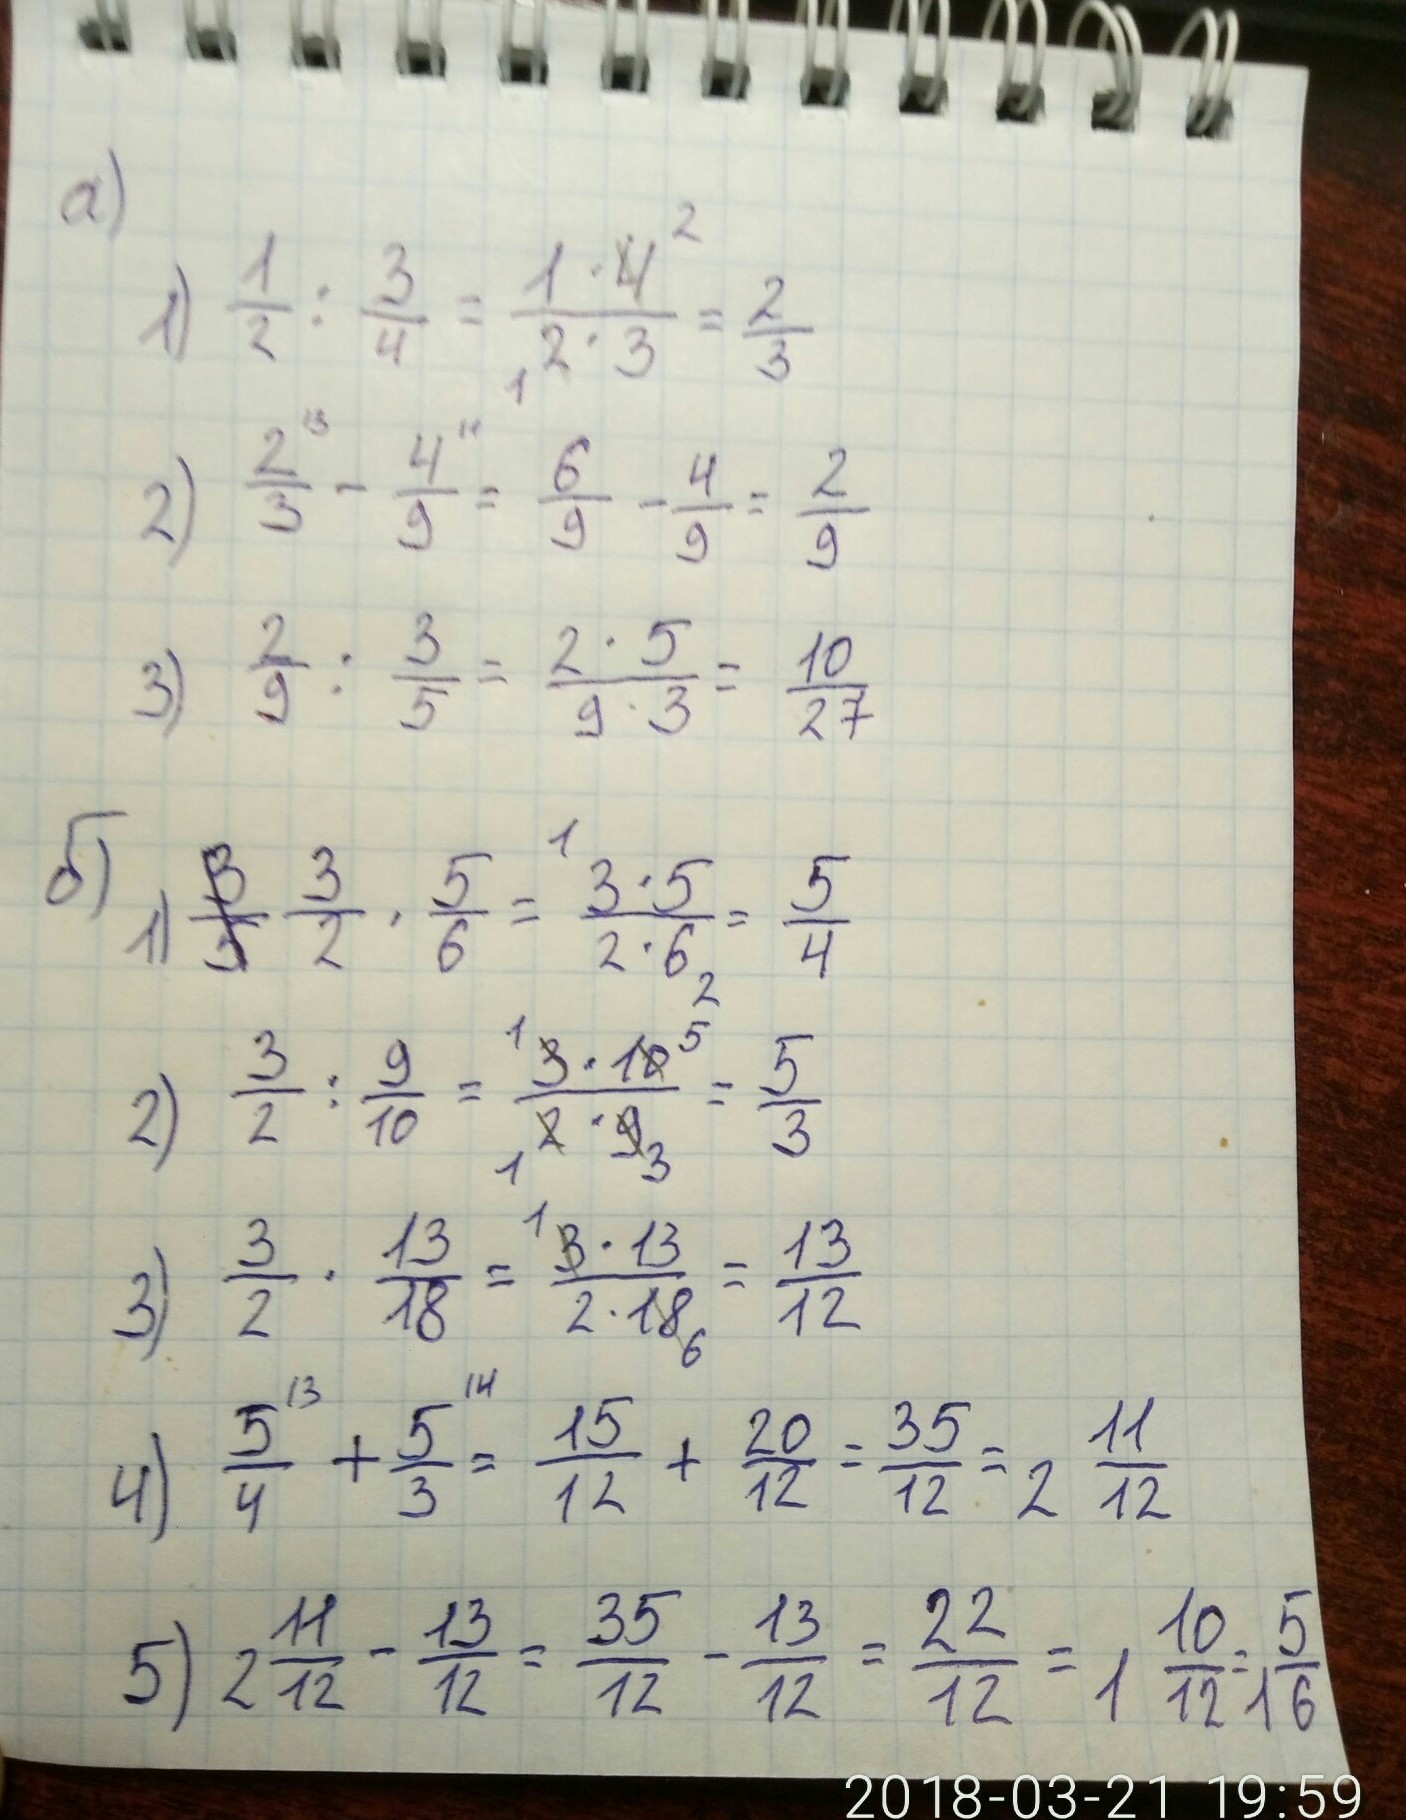 а)
1) 1/2 : 3/4 = 1·4²/₁2·3 = 2/3
2) 2/3 ˡ³ - 4/9 ˡ¹ = 6/9 - 4/9 = 2/9
3) 2/9 : 3/5 = 2·5/9·3 = 10/27
б)
1) 3/2 · 5/6 = ¹3·5/2·6₂ = 5/4
2) 3/2 : 9/10 = ¹3·10⁵/₁2·9₃ = 5/3
3) 3/2 · 13/18 = ¹3·13/2·18₆ = 13/12
4) 5/4 ˡ³ + 5/3 ˡ⁴ = 15/12 + 20/12 = 35/12 = 2 11/12
5) 2 11/12 - 13/12 = 35/12 - 13/12 = 22/12 = 1 10/12 = 1 5/6
2018-03-21 19:59